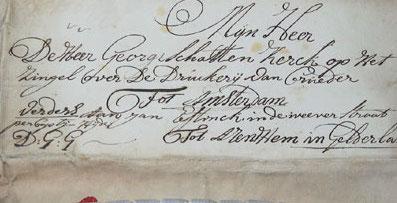 Mijn Heer
De Heer Georg Schatten kerck op het
Cingel over De Druckerij van
Tot Amsterdam
verders aan Jan in de weever straat
D: G: G Tot Arenhem in Gelderla